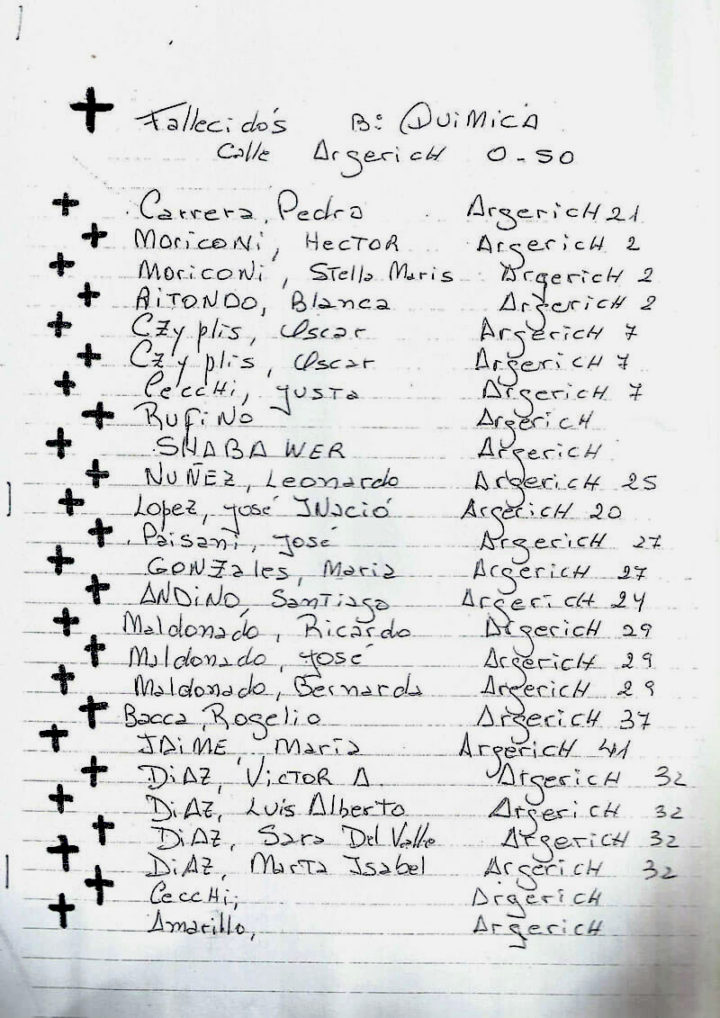 Fallecidos B: QUIMICA
Calle ArgericH 0-50
Carrera, Pedro ArgericH 21
MoricoNi, HecToR ArgericH 2
MoricoNi, Stella Maris ArgericH 2
AiTONDO, Blanca ArgericH 2
CZyplis, Oscar ArgericH 7
CZyplis, Oscar ArgericH 7
CeccHi, JUSTa ArgericH 7
RUFiNO ArgericH
SHABA WER ArgericH
NUÑEZ, Leonardo ArgericH 25
LopeZ, José INació ArgericH 20
Paisani, José ArgericH 27
GONZales, Maria ArgericH 27
ANDiNO, SanTiago ArgericH 24
Maldonado, Ricardo ArgericH 29
Maldonado, José ArgericH 29
Maldonado, Bernarda ArgericH 29
Bacca, Rogelio ArgericH 37
JAiME, Maria ArgericH 41
DiAZ, VicToR A ArgericH 32
DiAZ, Luis Alberto ArgericH 32
DiAZ, Sara Del Valle ArgericH 32
DiAZ, MarTa Isabel ArgericH 32
CeccHi, ArgericH
Amarillo, ArgericH